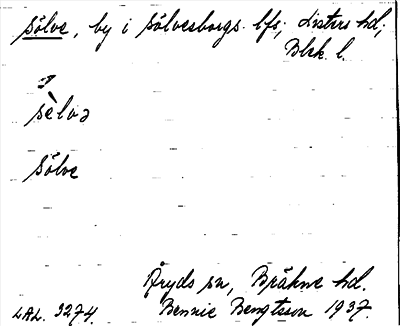 Sölve, by i Sölvesborgs lfs; Listers hd;
Blek. l.
sèlvə
Sölve
Åryds sn, Bräkne hd.
LAL. 3274. Bennie Bengtsson 1937.